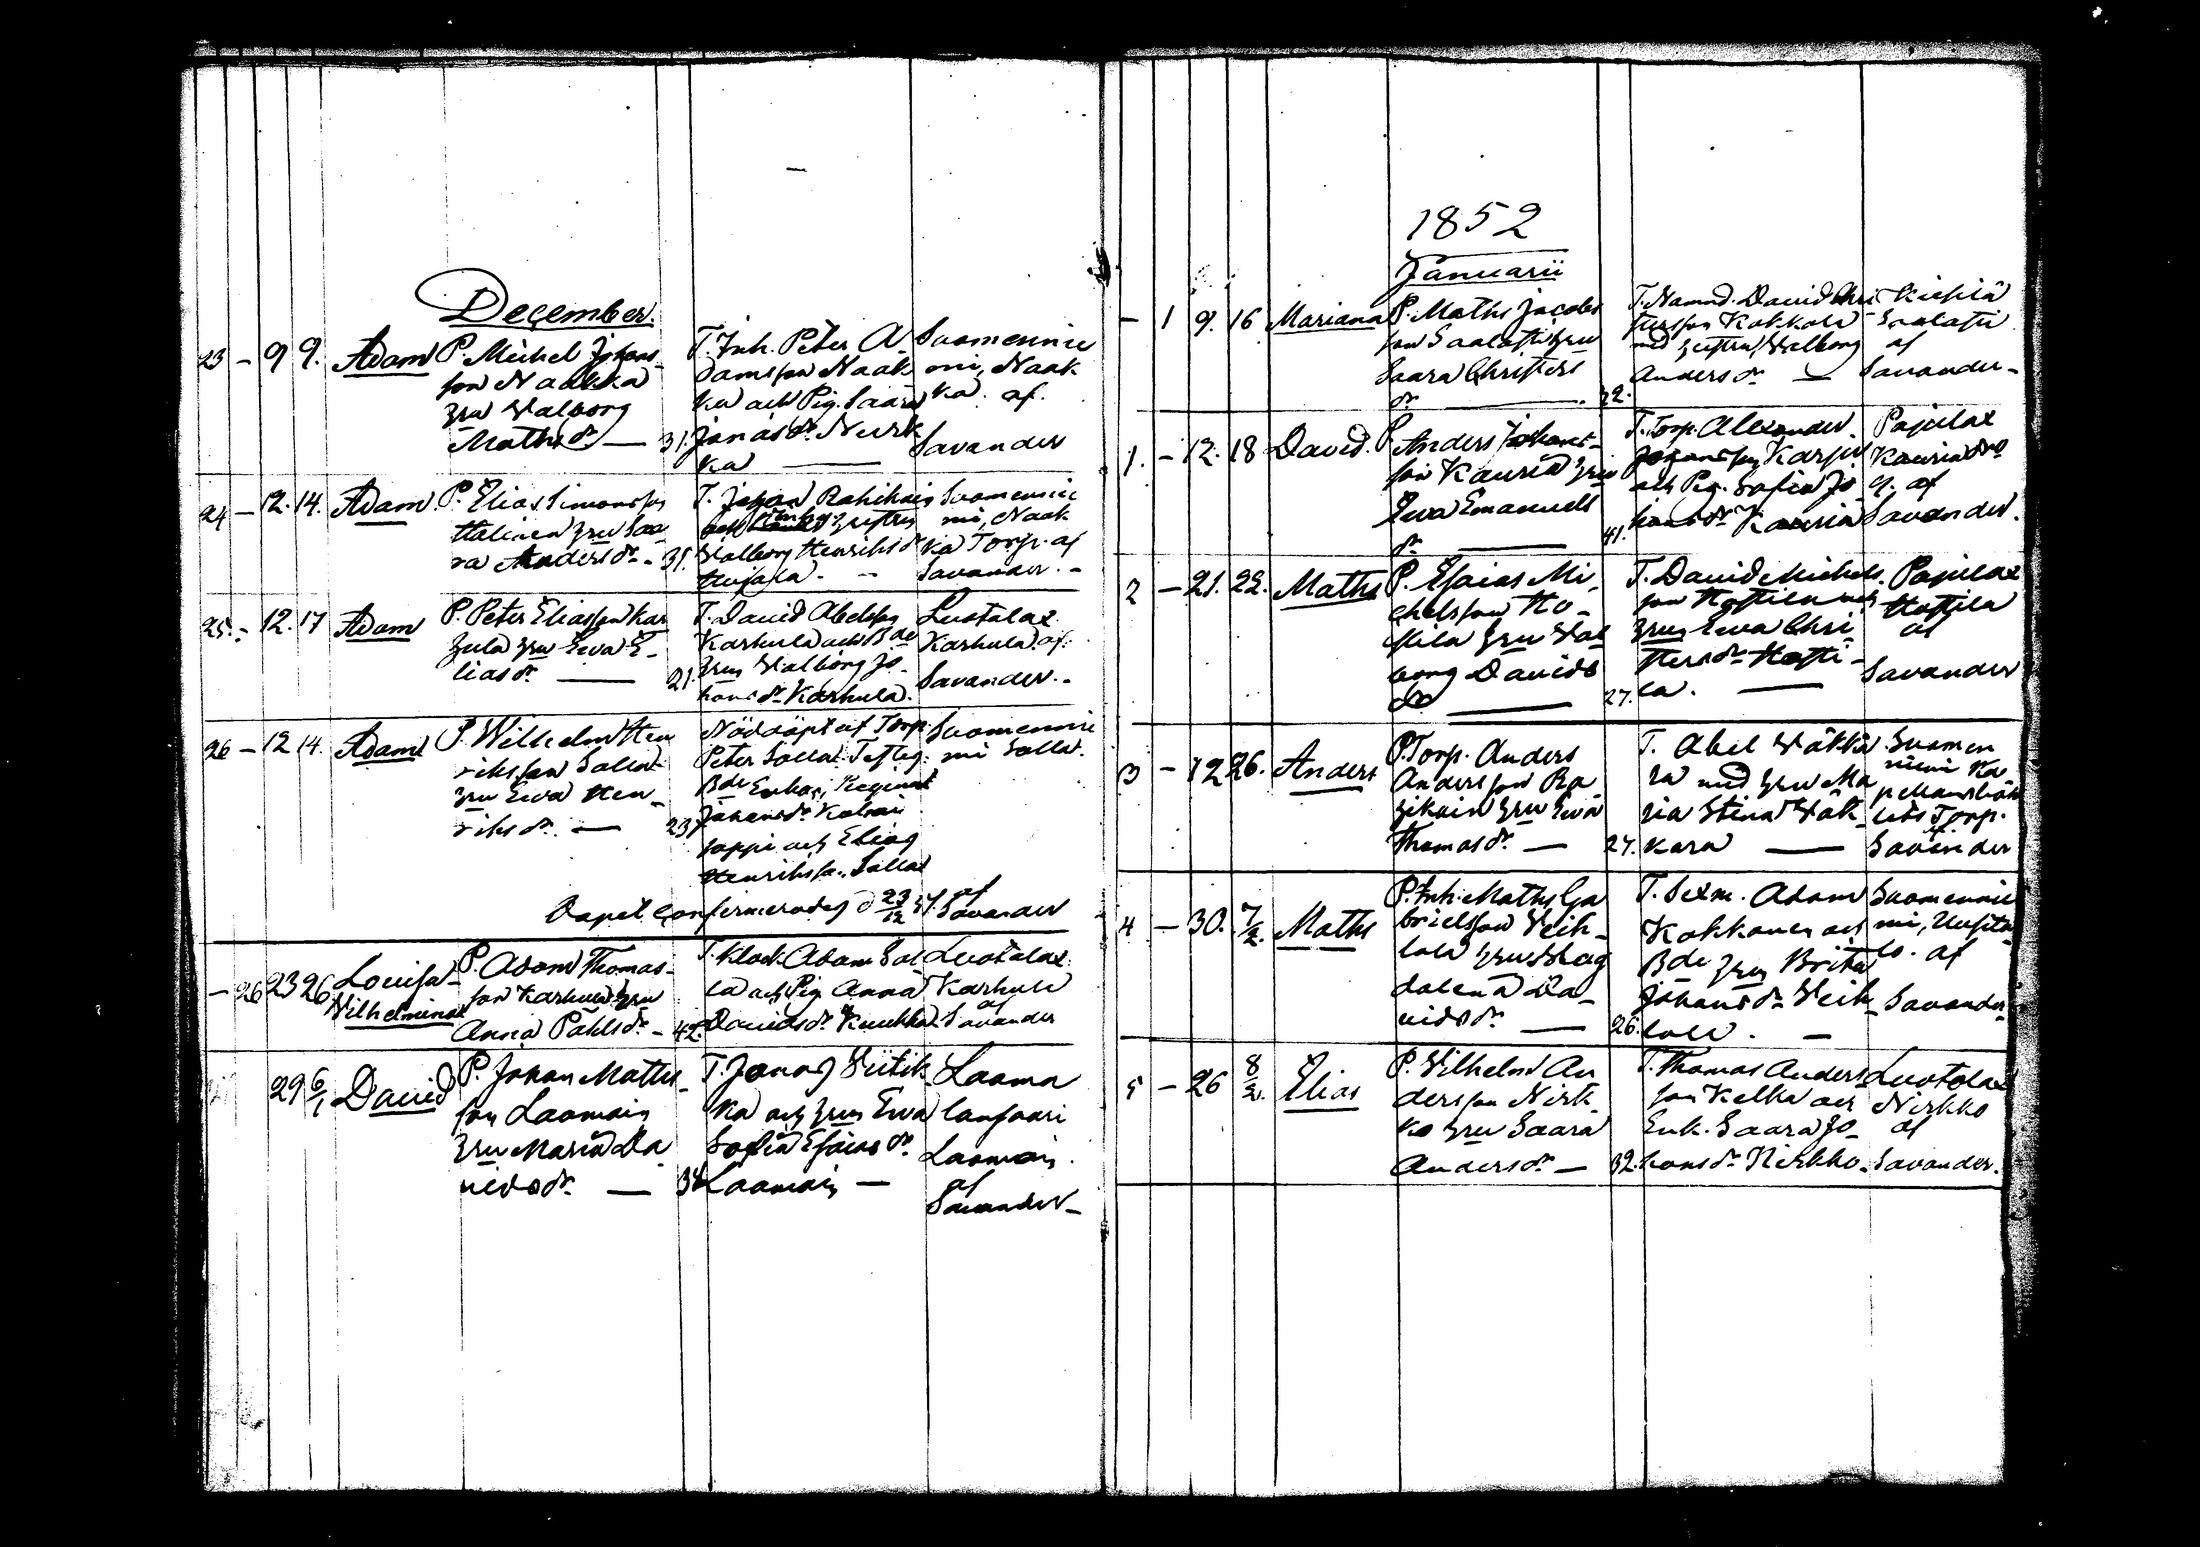 December.
23 - 9 9. Adam P. Michel Johans-
son Naakka
hru Walborg
Mathsdr — 31.
T. Inh. Peter A
damsson Naak
ka och Pig. Saara
Jonasdr Nurk
ka —
Suomennie
mi, Naak
ka. af.
Savander
24 - 12. 14. Adam. P. Elias Simonsson
Halinen hru Saa
ra Andersdr - 31.
T. Johan Rahikain
och hustru
Walborg Henriksdr
Suomennie
mi, Naak
ka Torp. af
Savander. -
25. - 12. 17 Adam P. Peter Eliasson Kar
hula hru Ewa E-
liasdr — 21.
T. David Abelsson
Karhula och Bde
hrun Walborg Jo-
hansdr Karhula.
Luotalax
Karhula. af.
Savander. -
26 - 12 14. Adam P. Wilhelm Hen
riksson Solla
hru Ewa Hen-
riksdr — 23
Nöddöpt af Torp.
Peter Solla. Testes:
Bde Enkan Regina
Johansdr
och Elias
Henriksson Solla
Suomennie
mi Solla.
Dopet confirmerades d 23/12 51. af
Savander
- 26 23 26 Lovisa
Wilhelmina
P. Adam Thomas-
son Karhula hru
Anna Påhlsdr - 42.
T. Klock. Adam Sol
la och Pig. Anna
Davidsdr Kuukka
Luotalax
Karhula
af
Savander
29 6/1 David P. Johan Maths-
son Laamain
hru Maria Da
vidsdr — 34
T. Jonas Wiitik
ka och hrun Ewa
Sofia Esaiasdr
Laamain —
Laama
lansaari
Laamain.
af
Savander -
1852
Januarii
- 1 9. 16 Mariana P. Maths Jacobs
son Saalasti hru
Saara Christers
dr — 22.
T. Nämnd. David Chri-
stersson Kokkola
med hustru Walborg
Andersdr —
Saalasti
af
Savander -
1. - 12. 18 David. P. Anders Johans-
son Kauria hru
Ewa Emanuels
dr — 41.
T. Torp. Alexander
Johansson
och Pig. Sofia Jo
hansdr Kauria
Pajulax
Kauria
af
Savander.
2 - 21. 22. Maths P. Esaias Mi-
chelsson Ho-
stila hru Wal
borg Davids
dr — 27.
T. David Michels
son Hostila och
hrun Ewa Chri-
stersdr Hosti-
la. —
Pajulax
Hostila
af
Savander
3 - 12 26. Anders P. Torp. Anders
Andersson Ra-
hikain hru Ewa
Thomasdr — 27.
T. Abel Wäkkä
rä med hru Ma
ria Stina Wäk-
kärä —
Suomen
niemi Ka-
pellansbol
Torp.
af
Savander
4 - 30. 7/2. Maths P. Inh. Maths Ga
brielsson Veih-
lola hru Mag
dalena Da-
vidsdr — 26.
T. Sexm. Adam
Kokkonen och
Bde hrun Brita
Johansdr Veih-
lola. —
Suomennie
mi, Uusita-
lo. af
Savander -
5 - 26 8/2. Elias P. Wilhelm An
dersson Nirk-
ko hru Saara
Andersdr — 32.
T. Thomas Anders-
son Kelka och
Enk. Saara Jo-
hansdr Nirkko.
Luotolax
Nirkko
af
Savander.